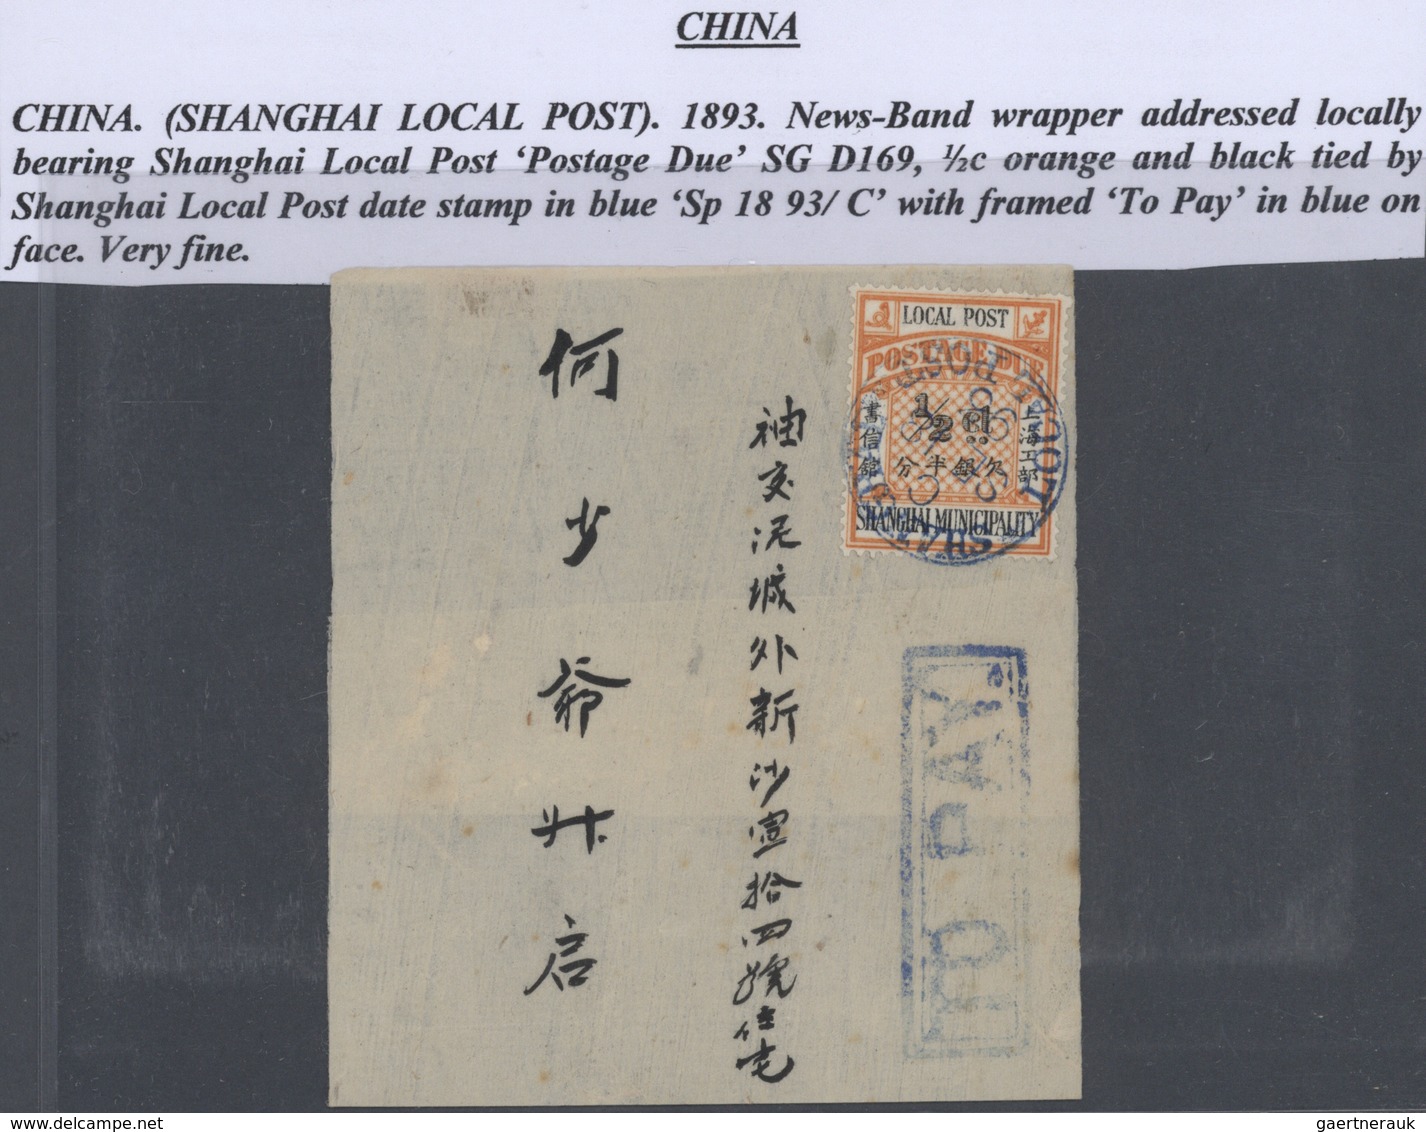 CHINA
CHINA. (SHANGHAI LOCAL POST). 1893. News-Band wrapper addressed locally
bearing Shanghai Local Post ‘Postage Due’ SG D169, ½c orange and black tied by
Shanghai Local Post date stamp in blue ‘Sp 18 93/ C’ with framed ‘To Pay’ in blue on
face. Very fine.
LOCAL POST
POSTAGE DUE
上海工部
書信館
1/2 Ct.
欠銀半分
SHANGHAI MUNICIPALITY
SHANGHAI LOCAL POST
TO PAY.
泥城外新沙宣拾四號住宅
何少爺升启
gaertnerauk